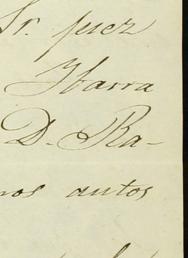 Sr. juez
Ybarra
D. Ra-
nos autos